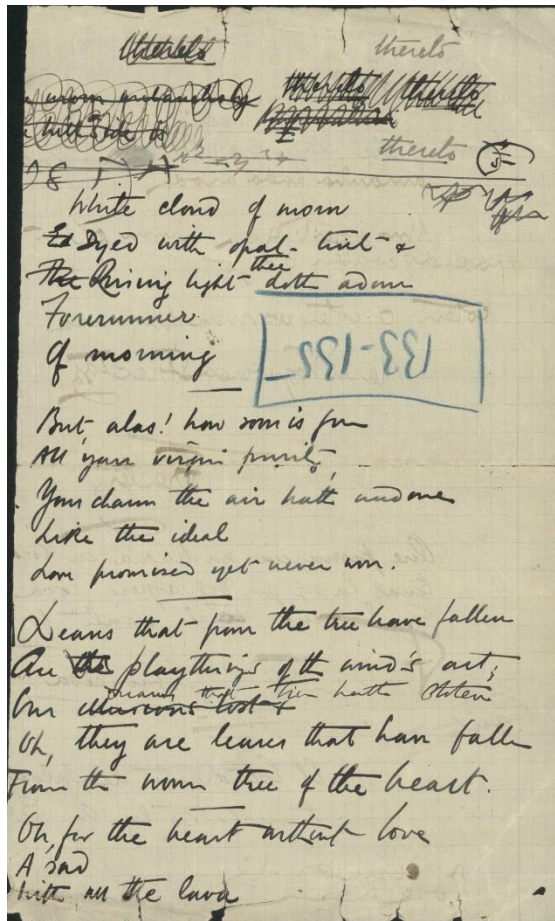 thereto thereto
worn melancholy thereto thereto
hill side is
thereto
White cloud of morn
Dyed with opal-tint &
The Rising light thee doth adorn
Forerunner
Of morning
133-135
But, alas! how soon is gone
All your virgin purity,
Your charm the air hath undone
Like the ideal
Love promised yet never won.
Leaves that from the tree have fallen
Are the playthings of th wind's art;
dreams that time hath stolen
Our illusions lost
Oh, they are leaves that have fallen
From th worn tree of the heart.
Oh, for the heart without love
A sad
With all the lava